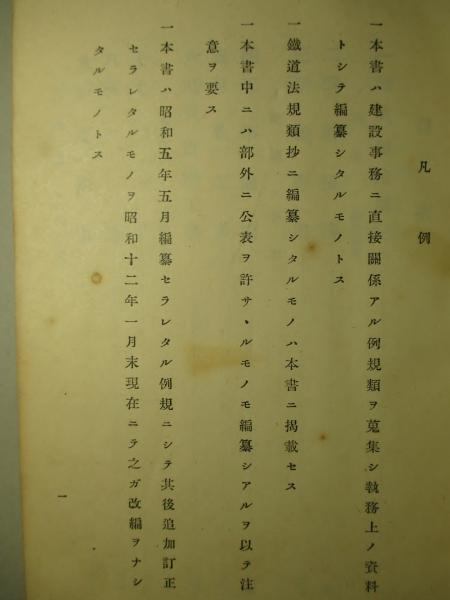 凡例
一本書ハ建設事務ニ直接關係アル例規類ヲ蒐集シ執務上ノ資料
トシテ編纂シタルモノトス
一鐵道法規類抄ニ編纂シタルモノハ本書ニ揭載セス
一本書中ニハ部外ニ公表ヲ許サヽルモノモ編纂シアルヲ以テ注
意ヲ要ス
一本書ハ昭和五年五月編纂セラレタル例規ニシテ其後追加訂正
セラレタルモノヲ昭和十二年一月末現在ニテ之ガ改編ヲナシ
タルモノトス
一